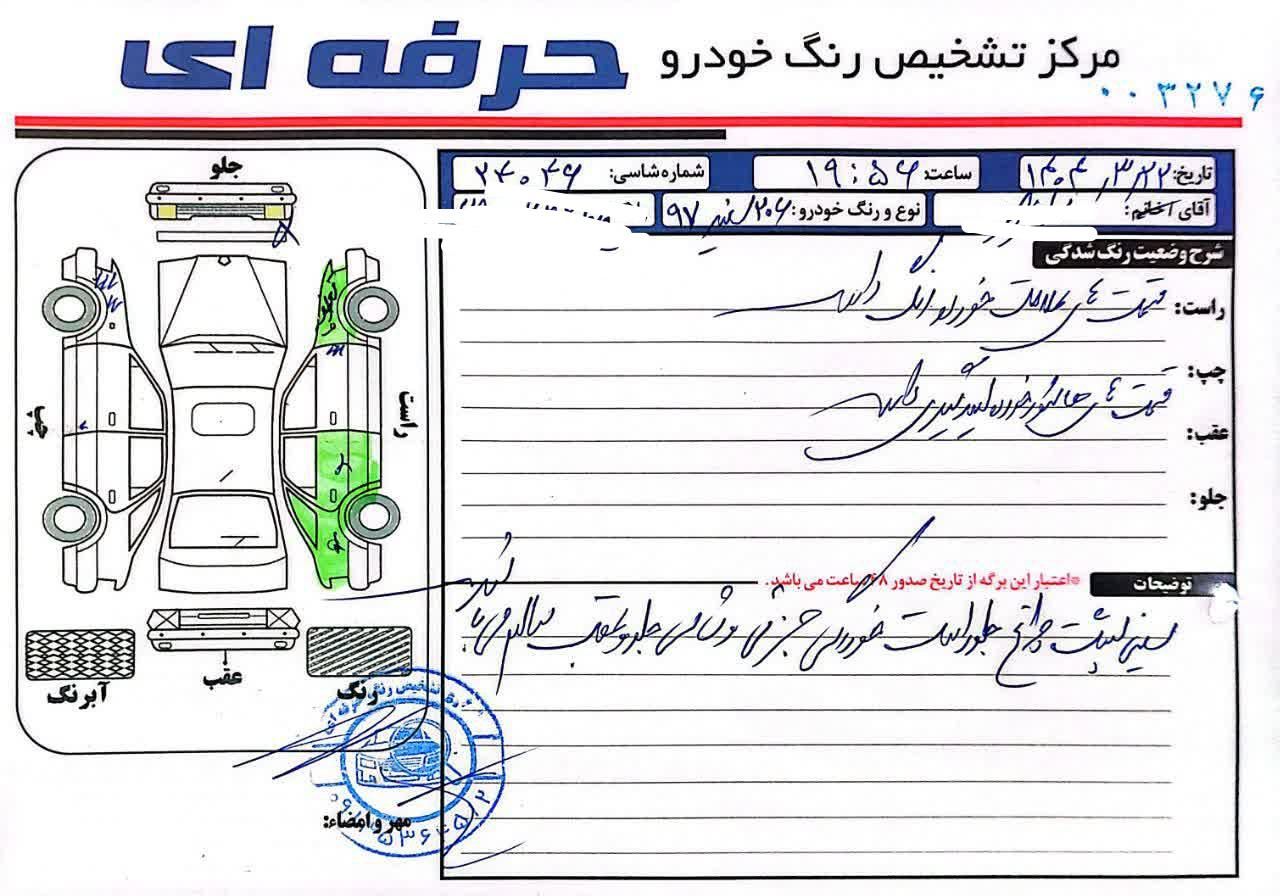 مرکز تشخیص رنگ خودرو حرفه ای
۰۰۳۲۷۶
تاریخ: ۱۴۰۴/۳/۲۲ ساعت: ۱۹:۵۶ شماره شاسی: ۲۴۰۴۶
آقای / خانم: نوع و رنگ خودرو: ۲۰۶ سفید ۹۷
شرح وضعیت رنگ شدگی
راست: قسمت های علامت خورده رنگ دارد
چپ:
قسمت های هاشور خورده لیسه گیری دارد
عقب:
جلو:
توضیحات
*اعتبار این برگه از تاریخ صدور ۴۸ ساعت می باشد.
سینی پشت چراغ جلو راست خوردگی جزئی و شاسی جلو و عقب سالم می باشد
جلو
راست
چپ
تعویض
عقب
رنگ
آبرنگ
مهر و امضاء: